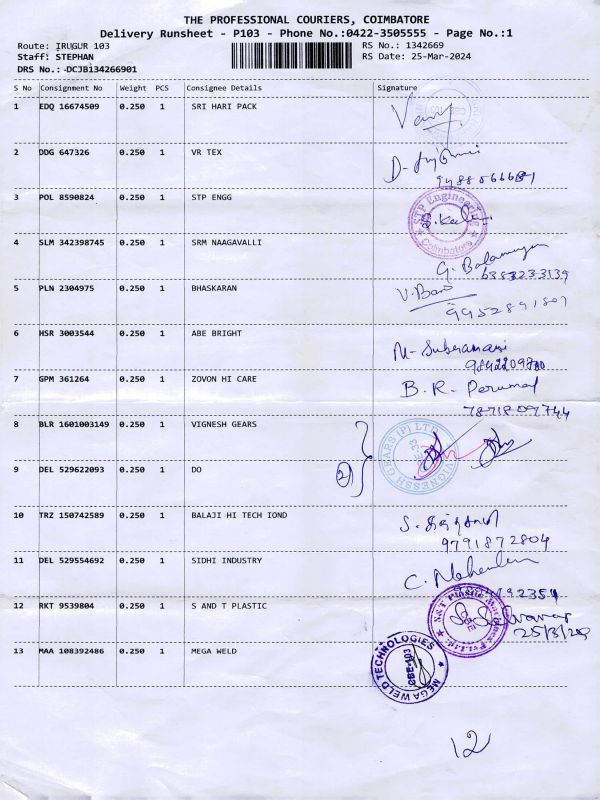 THE PROFESSIONAL COURIERS, COIMBATORE
Delivery Runsheet - P103 - Phone No.:0422-3505555 - Page No.:1
Route: IRUGUR 103 RS No.: 1342669
Staff: STEPHAN RS Date: 25-Mar-2024
DRS No.: DCJB134266901
S No Consignment No Weight PCS Consignee Details Signature
1 EDQ 16674509 0.250 1 SRI HARI PACK
2 DDG 647326 0.250 1 VR TEX
3 POL 8590824 0.250 1 STP ENGG
STP Engineering
Coimbatore
4 SLM 342398745 0.250 1 SRM NAAGAVALLI
G. Balamurugan
6383233139
5 PLN 2304975 0.250 1 BHASKARAN
9952891807
6 HSR 3003544 0.250 1 ABE BRIGHT
M- Subramani
7 GPM 361264 0.250 1 ZOVON HI CARE
B. R. Perumal
7871809744
8 BLR 1601003149 0.250 1 VIGNESH GEARS
VIGNESSH GEARS (P) LTD
9 DEL 529622093 0.250 1 DO
2
10 TRZ 150742589 0.250 1 BALAJI HI TECH IOND
9791872804
11 DEL 529554692 0.250 1 SIDHI INDUSTRY
C. Mahendran
12 RKT 9539804 0.250 1 S AND T PLASTIC
S&T Plastic Machines Pvt. Ltd.
13 MAA 108392486 0.250 1 MEGA WELD
MEGA WELD TECHNOLOGIES
CBE-103
12